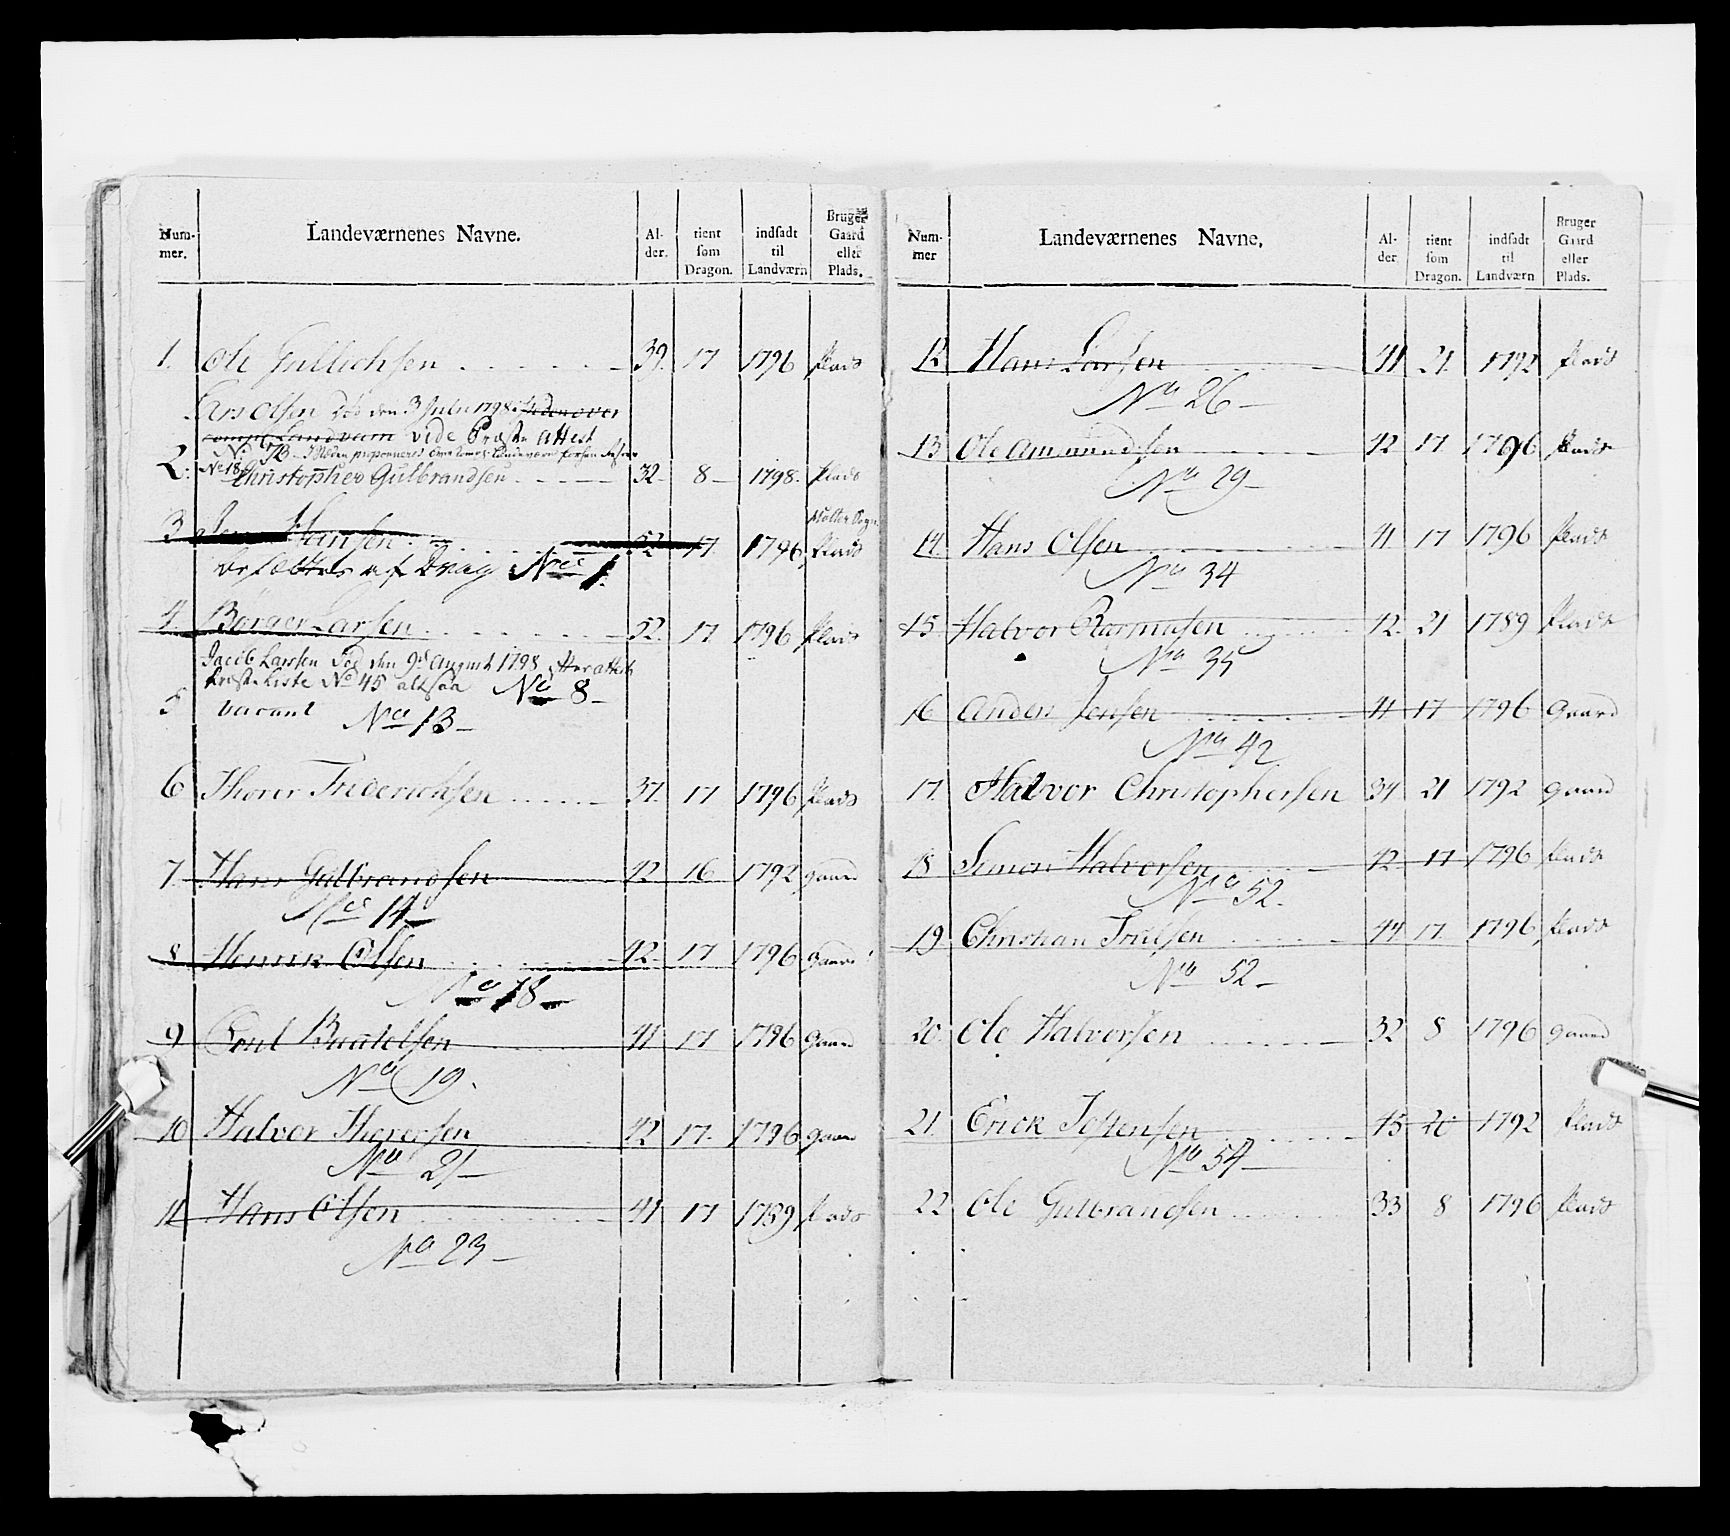 Num-
mer.
Landeværnenes Navne.
Al-
der.
tient
som
Dragon.
indsadt
til
Landværn
Bruger
Gaard
eller
Plads.
1. Ole Gullichsen 39. 17 1796 plads
Lars Olsen død den 3 Julii 1798
Landværn vide Præste Attest
No 73
2. No 18 Christopher Gulbrandsen 32. 8 1798. plads
3 Hansen 52 17. 1796 plads
af Drag No 1.
4. Børger Larsen 52. 17 1796 plads
Jacob Larsen død den 9de August 1798
Liste No 45 altsaa No 8
5 vacant No 13
6 Thorer Friderichsen 37. 17 1796 plads
7. Hans Gulbrandsen 42 16 1792 gaard
No 14
8 Henrik Olsen 42. 17 1796 gaard
No 18
9 Poul Baatelsen 41 17 1796 gaard
No 19.
10 Halvor Thorersen 42 17. 1796 gaard
No 21
11 Hans Olsen 41 17 1789 plads
No 23
Num-
mer
Landeværnenes Navne.
Al-
der
tient
som
Dragon.
indsadt
til
Landværn
Bruger
Gaard
eller
Plads.
12 Hans Larsen 41 21. 1792 plads
No 26
13 Ole Ammundsen 42 17 1796 plads
No 29
14. Hans Olsen 41. 17 1796 plads
No 34
15 Halvor Rasmusen 42. 21 1789 plads
No 35
16 Anders Jensen 41 17 1796 Gaard
No 42
17. Halvor Christophersen 34 21 1792 gaard
18 Simon Halvorsen 42. 17 1796 plads
No 52.
19 Christian Truelsen 44. 17. 1796 plads
No 52
20. Ole Halvorsen 32 8 1796 gaard
21. Erick Jostensen 45 20 1792 plads
No 54
22 Ole Gulbrandsen 33 8 1796 plads